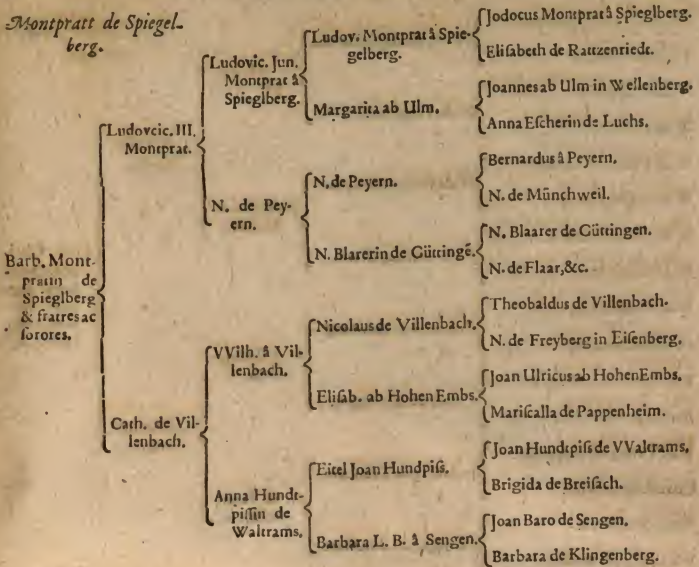 Montpratt de Spiegel-
berg.
Barb. Mont-
pratin de
Spieglberg
& fratres ac
sorores.
Ludovcic. III.
Montprat.
Cath. de Vil-
lenbach.
Ludovic. Jun.
Montprat â
Spieglberg.
N. de Pey-
ern.
VVilh. â Vil-
lenbach.
Anna Hundt-
pissin de
Waltrams.
Ludov. Montprat â Spie-
gelberg.
Margarita ab Ulm.
N. de Peyern.
N. Blarerin de Güttingē.
Nicolaus de Villenbach.
Elisab. ab Hohen Embs.
Eitel Joan Hundpiss.
Barbara L. B. â Sengen.
Jodocus Montprat â Spieglberg.
Elisabeth de Rattzenriedt.
Joannes ab Ulm in Wellenberg.
Anna Escherin de Luchs.
Bernardus â Peyern.
N. de Münchweil.
N. Blaarer de Güttingen.
N. de Flaar, &c.
Theobaldus de Villenbach.
N. de Freyberg in Eisenberg.
Joan Ulricus ab Hohen Embs.
Mariscalla de Pappenheim.
Joan Hundtpiss de VValtrams.
Brigida de Breisach.
Joan Baro de Sengen.
Barbara de Klingenberg.